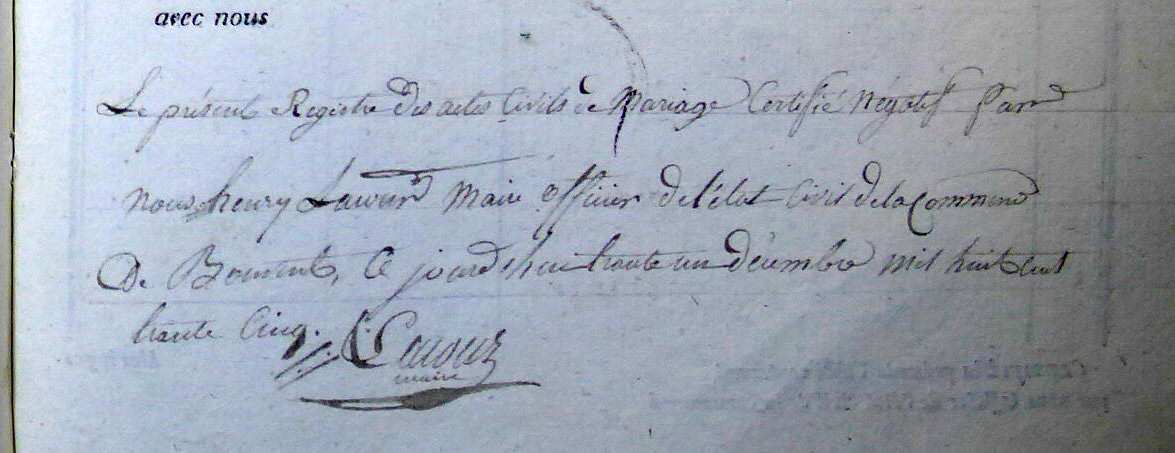 avec nous
Le présent Registre des actes Civils de Mariage Certifié Négatif Par
nous henry Maire officier de l'état Civil de la Commune
De ce jourd'hui trente un décembre mil huit cent
trente Cinq.
maire